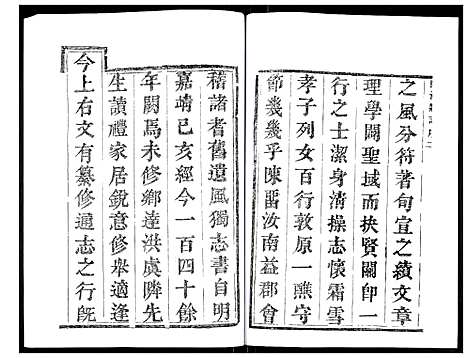 之風分符著旬宣之績文章
理學闢聖域而抉賢關卽一
行之士潔身清操志懷霜雪
孝子列女百行敦原一醮守
節幾幾乎陳畱汝南益郡會
稽諸耆舊遺風獨志書自明
嘉靖己亥經今一百四十餘
年闕焉未修鄉達洪虞隣先
生讀禮家居銳意修舉適逢
今上右文有纂修通志之行旣